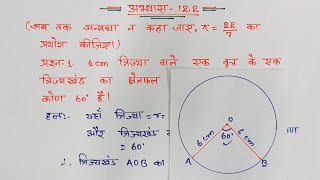 अभ्यास - 12.2
(जब तक अन्यथा न कहा जाए, π = 22/7 का
प्रयोग कीजिए।)
प्रश्न-1. 6 cm त्रिज्या वाले एक वृत्त के एक
त्रिज्यखंड का क्षेत्रफल
कोण 60° है।
हल:- यहाँ त्रिज्या = r =
और त्रिज्यखंड
= 60°
∴ त्रिज्यखंड AOB का
O
60°
6 cm
6 cm
A
B